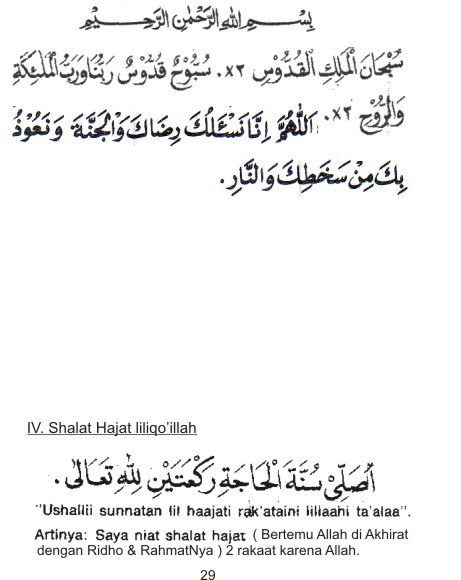 بِسْمِ اللهِ الرَّحْمٰنِ الرَّحِيْمِ
سُبْحَانَ الْمَلِكِ الْقُدُّوْسِ ٣×. سُبُّوْحٌ قُدُّوْسٌ رَبُّنَا وَرَبُّ الْمَلٰئِكَةِ
وَالرُّوْحِ ٣×. اَللّٰهُمَّ اِنَّا نَسْئَلُكَ رِضَاكَ وَالْجَنَّةَ وَنَعُوْذُ
بِكَ مِنْ سَخَطِكَ وَالنَّارِ.
IV. Shalat Hajat liliqo'illah
اُصَلِّيْ سُنَّةَ الْحَاجَةِ رَكْعَتَيْنِ لِلّٰهِ تَعَالٰى.
"Ushallii sunnatan lil haajati rak'ataini lillaahi ta'alaa".
Artinya: Saya niat shalat hajat ( Bertemu Allah di Akhirat
dengan Ridho & RahmatNya ) 2 rakaat karena Allah.
29